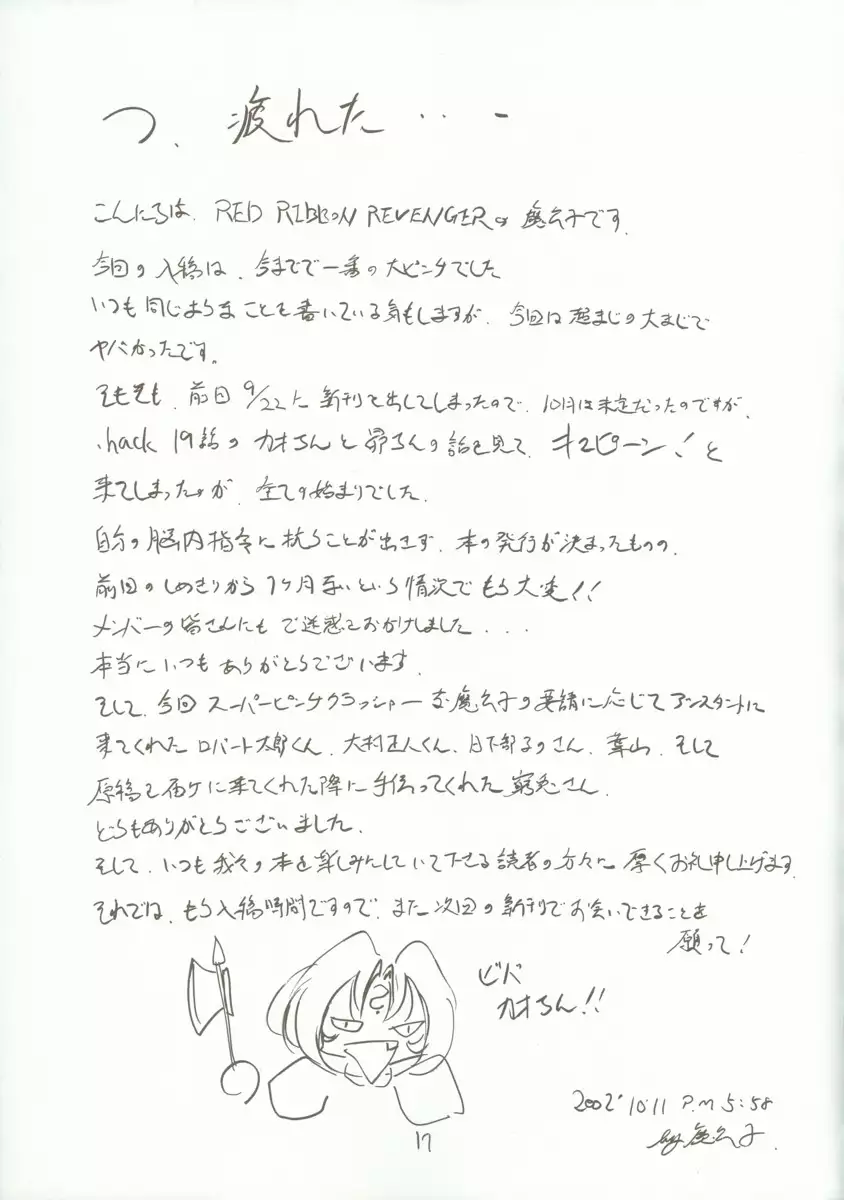 つ、疲れた・・・ー
こんにちは、RED RIBBON REVENGERの魔公子です。
今回の入稿は、今までで一番の大ピンチでした
いつも同じようなことを書いている気もしますが、今回は超まじの大まじで
ヤバかったです。
そもそも、前回9/22に新刊を出してしまったので、10月は未定だったのですが、
.hack 19話のカオちんと昴ちんの話を見て、キュピーン!と
来てしまったのが、全ての始まりでした。
自分の脳内指令に抗うことが出来ず、本の発行が決まったものの、
前回のしめきりから1ヶ月無いという情況でもう大変!!
メンバーの皆さんにもご迷惑をおかけしました...
本当にいつもありがとうございます。
そして、今回スーパーピンチクラッシャーな魔公子の要請に応じてアシスタントに
来てくれたロバート太郎くん、大村正人くん、日下部るりさん、葉山、そして
原稿を届けに来てくれた際に手伝ってくれた窮兎さん、
どうもありがとうございました。
そして、いつも我々の本を楽しみにしていて下さる読者の方々に厚くお礼申し上げます。
それでは、もう入稿時間ですので、また次回の新刊でお会いできることを
願って!
ビバ
カオちん!!
2002・10・11 P.M 5:58
by 魔公子.
17